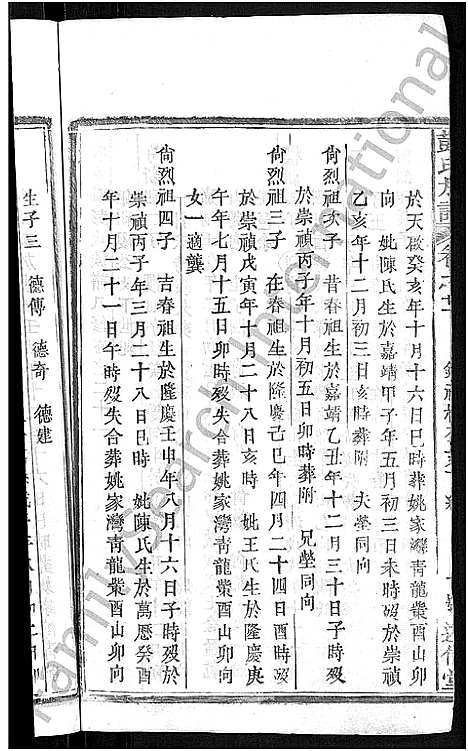 彭氏族譜
於天啟癸亥年十月十六日巳時葬姚家灣青龍業酉山卯
向 妣陳氏生於嘉靖甲子年五月初三日未時歿於崇禎
乙亥年十二月初三日亥時葬附 夫塋同向
尙烈祖次子 昔春祖生於嘉靖乙丑年十二月三十日子時歿
於崇禎丙子年十月初五日卯時葬附 兄塋同向
尙烈祖三子 在春祖生於隆慶己巳年四月二十四日酉時歿
於崇禎戊寅年十月二十八日亥時 妣王氏生於隆慶庚
午年七月十五日卯時歿失合葬姚家灣青龍業酉山卯向
女一適龔
尙烈祖四子 吉春祖生於隆慶壬申年八月十六日子時歿於
崇禎丙子年三月二十八日巳時 妣陳氏生於萬曆癸酉
年十月二十一日午時歿失合葬姚家灣青龍業酉山卯向
生子三 德傳 德奇 德建
Family Search International